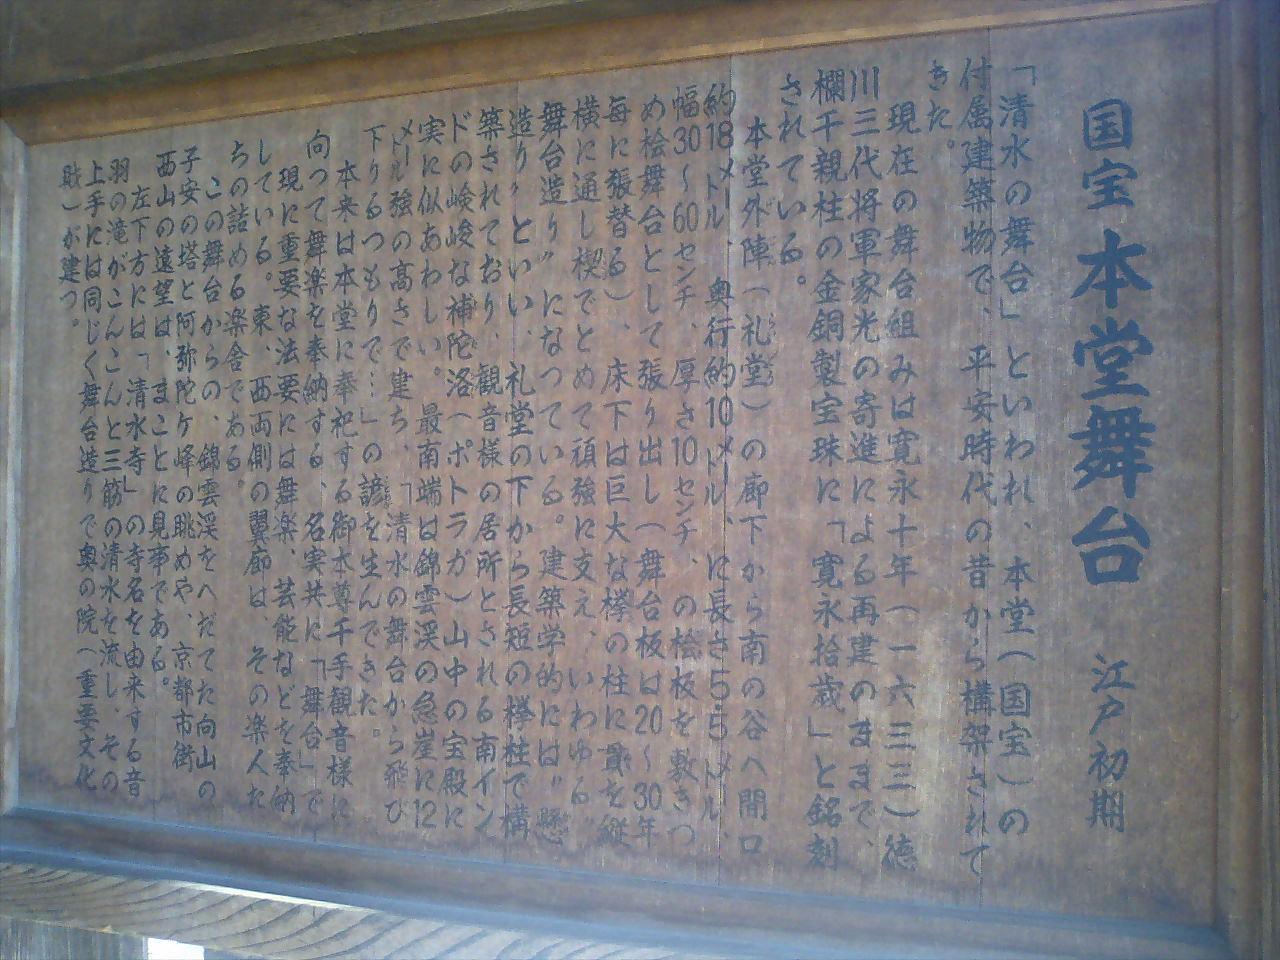 国宝 本堂舞台 江戸初期
「清水の舞台」といわれ、本堂(国宝)の
付属建築物で、平安時代の昔から構架されて
きた。
現在の舞台組みは寛永十年(一六三三)徳
川三代将軍家光の寄進による再建のままで、
欄干親柱の金銅製宝珠に「寛永拾歳」と銘刻
されている。
本堂外陣(礼堂)の廊下から南の谷へ間口
約18メートル、奥行約10メートル、に長さ5.5メートル、
幅30〜60センチ、厚さ10センチ、の桧板を敷きつ
め桧舞台として張り出し(舞台板は20〜30年
毎に張替る)、床下は巨大な欅の柱に貫を縦
横に通し楔でとめて頑強に支え、いわゆる〝
舞台造り〟になっている。建築学的には〝懸
造り〟といい、礼堂の下から長短の欅柱で構
築されており、観音様の居所とされる南イン
ドの峻峻な補陀洛(ポトラガ)山中の宝殿に
実に似あわしい。最南端は錦雲渓の急崖に12
メートル強の高さで建ち、「清水の舞台から飛び
下りるつもりで…」の諺を生んできた。
本来は本堂に奉祀する御本尊千手観音様に
向って舞楽を奉納する、名実共に「舞台」で
現に重要な法要には舞楽、芸能などを奉納
している。東、西両側の翼廊は、その楽人た
ちの詰める楽舎である。
この舞台からの、錦雲渓をへだてた向山の
子安の塔と阿弥陀ケ峰の眺めや、京都市街
西山の遠望は、まことに見事である。
左下方には「清水寺」の寺名を由来する音
羽の滝がこんこんと三筋の清水を流し、その
上手には同じく舞台造りで奥の院(重要文化
財)が建つ。